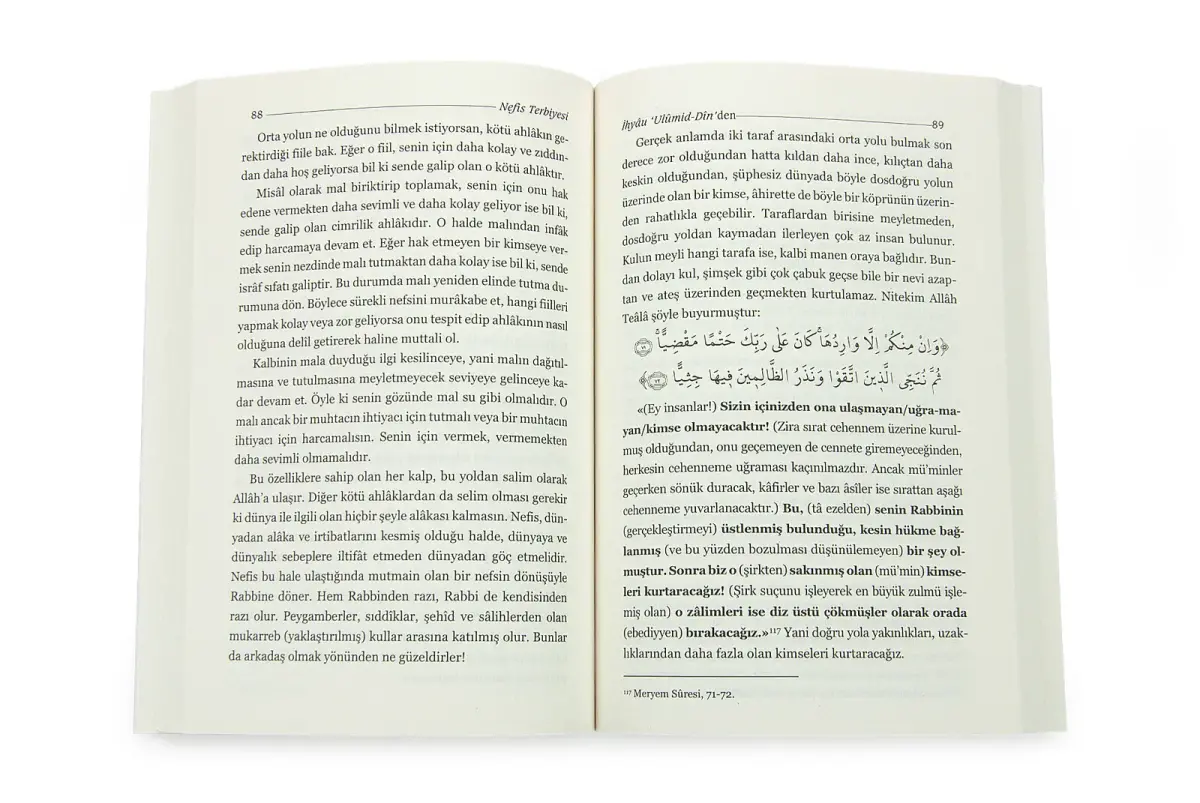 88 Nefis Terbiyesi
Orta yolun ne olduğunu bilmek istiyorsan, kötü ahlâkın ge-
rektirdiği fiile bak. Eğer o fiil, senin için daha kolay ve zıddın-
dan daha hoş geliyorsa bil ki sende galip olan o kötü ahlâktır.
Misâl olarak mal biriktirip toplamak, senin için onu hak
edene vermekten daha sevimli ve daha kolay geliyor ise bil ki,
sende galip olan cimrilik ahlâkıdır. O halde malından infâk
edip harcamaya devam et. Eğer hak etmeyen bir kimseye ver-
mek senin nezdinde malı tutmaktan daha kolay ise bil ki, sende
isrâf sıfatı galiptir. Bu durumda malı yeniden elinde tutma du-
rumuna dön. Böylece sürekli nefsini murâkabe et, hangi fiilleri
yapmak kolay veya zor geliyorsa onu tespit edip ahlâkının nasıl
olduğuna delil getirerek haline muttali ol.
Kalbinin mala duyduğu ilgi kesilinceye, yani malın dağıtıl-
masına ve tutulmasına meyletmeyecek seviyeye gelinceye ka-
dar devam et. Öyle ki senin gözünde mal su gibi olmalıdır. O
malı ancak bir muhtacın ihtiyacı için tutmalı veya bir muhtacın
ihtiyacı için harcamalısın. Senin için vermek, vermemekten
daha sevimli olmamalıdır.
Bu özelliklere sahip olan her kalp, bu yoldan salim olarak
Allâh'a ulaşır. Diğer kötü ahlâklardan da selim olması gerekir
ki dünya ile ilgili olan hiçbir şeyle alâkası kalmasın. Nefis, dün-
yadan alâka ve irtibatlarını kesmiş olduğu halde, dünyaya ve
dünyalık sebeplere iltifât etmeden dünyadan göç etmelidir.
Nefis bu hale ulaştığında mutmain olan bir nefsin dönüşüyle
Rabbine döner. Hem Rabbinden razı, Rabbi de kendisinden
razı olur. Peygamberler, sıddîklar, şehîd ve sâlihlerden olan
mukarreb (yaklaştırılmış) kullar arasına katılmış olur. Bunlar
da arkadaş olmak yönünden ne güzeldirler!
İhyâu 'Ulûmid-Dîn'den 89
Gerçek anlamda iki taraf arasındaki orta yolu bulmak son
derece zor olduğundan hatta kıldan daha ince, kılıçtan daha
keskin olduğundan, şüphesiz dünyada böyle dosdoğru yolun
üzerinde olan bir kimse, âhirette de böyle bir köprünün üzerin-
den rahatlıkla geçebilir. Taraflardan birisine meyletmeden,
dosdoğru yoldan kaymadan ilerleyen çok az insan bulunur.
Kulun meyli hangi tarafa ise, kalbi manen oraya bağlıdır. Bun-
dan dolayı kul, şimşek gibi çok çabuk geçse bile bir nevi azap-
tan ve ateş üzerinden geçmekten kurtulamaz. Nitekim Allâh
Teâlâ şöyle buyurmuştur:
﴿وَاِنْ مِنْكُمْ اِلَّا وَارِدُهَاۚ كَانَ عَلٰى رَبِّكَ حَتْمًا مَقْضِيًّاۚ ﴿٧١﴾
ثُمَّ نُنَجِّي الَّذ۪ينَ اتَّقَوْا وَنَذَرُ الظَّالِم۪ينَ ف۪يهَا جِثِيًّا ﴿٧٢﴾
«(Ey insanlar!) Sizin içinizden ona ulaşmayan/uğra-ma-
yan/kimse olmayacaktır! (Zira sırat cehennem üzerine kurul-
muş olduğundan, onu geçemeyen de cennete giremeyeceğinden,
herkesin cehenneme uğraması kaçınılmazdır. Ancak mü'minler
geçerken sönük duracak, kâfirler ve bazı âsîler ise sırattan aşağı
cehenneme yuvarlanacaktır.) Bu, (tâ ezelden) senin Rabbinin
(gerçekleştirmeyi) üstlenmiş bulunduğu, kesin hükme bağ-
lanmış (ve bu yüzden bozulması düşünülemeyen) bir şey ol-
muştur. Sonra biz o (şirkten) sakınmış olan (mü'min) kimse-
leri kurtaracağız! (Şirk suçunu işleyerek en büyük zulmü işle-
miş olan) o zâlimleri ise diz üstü çökmüşler olarak orada
(ebediyyen) bırakacağız.»117 Yani doğru yola yakınlıkları, uzak-
lıklarından daha fazla olan kimseleri kurtaracağız.
117 Meryem Sûresi, 71-72.